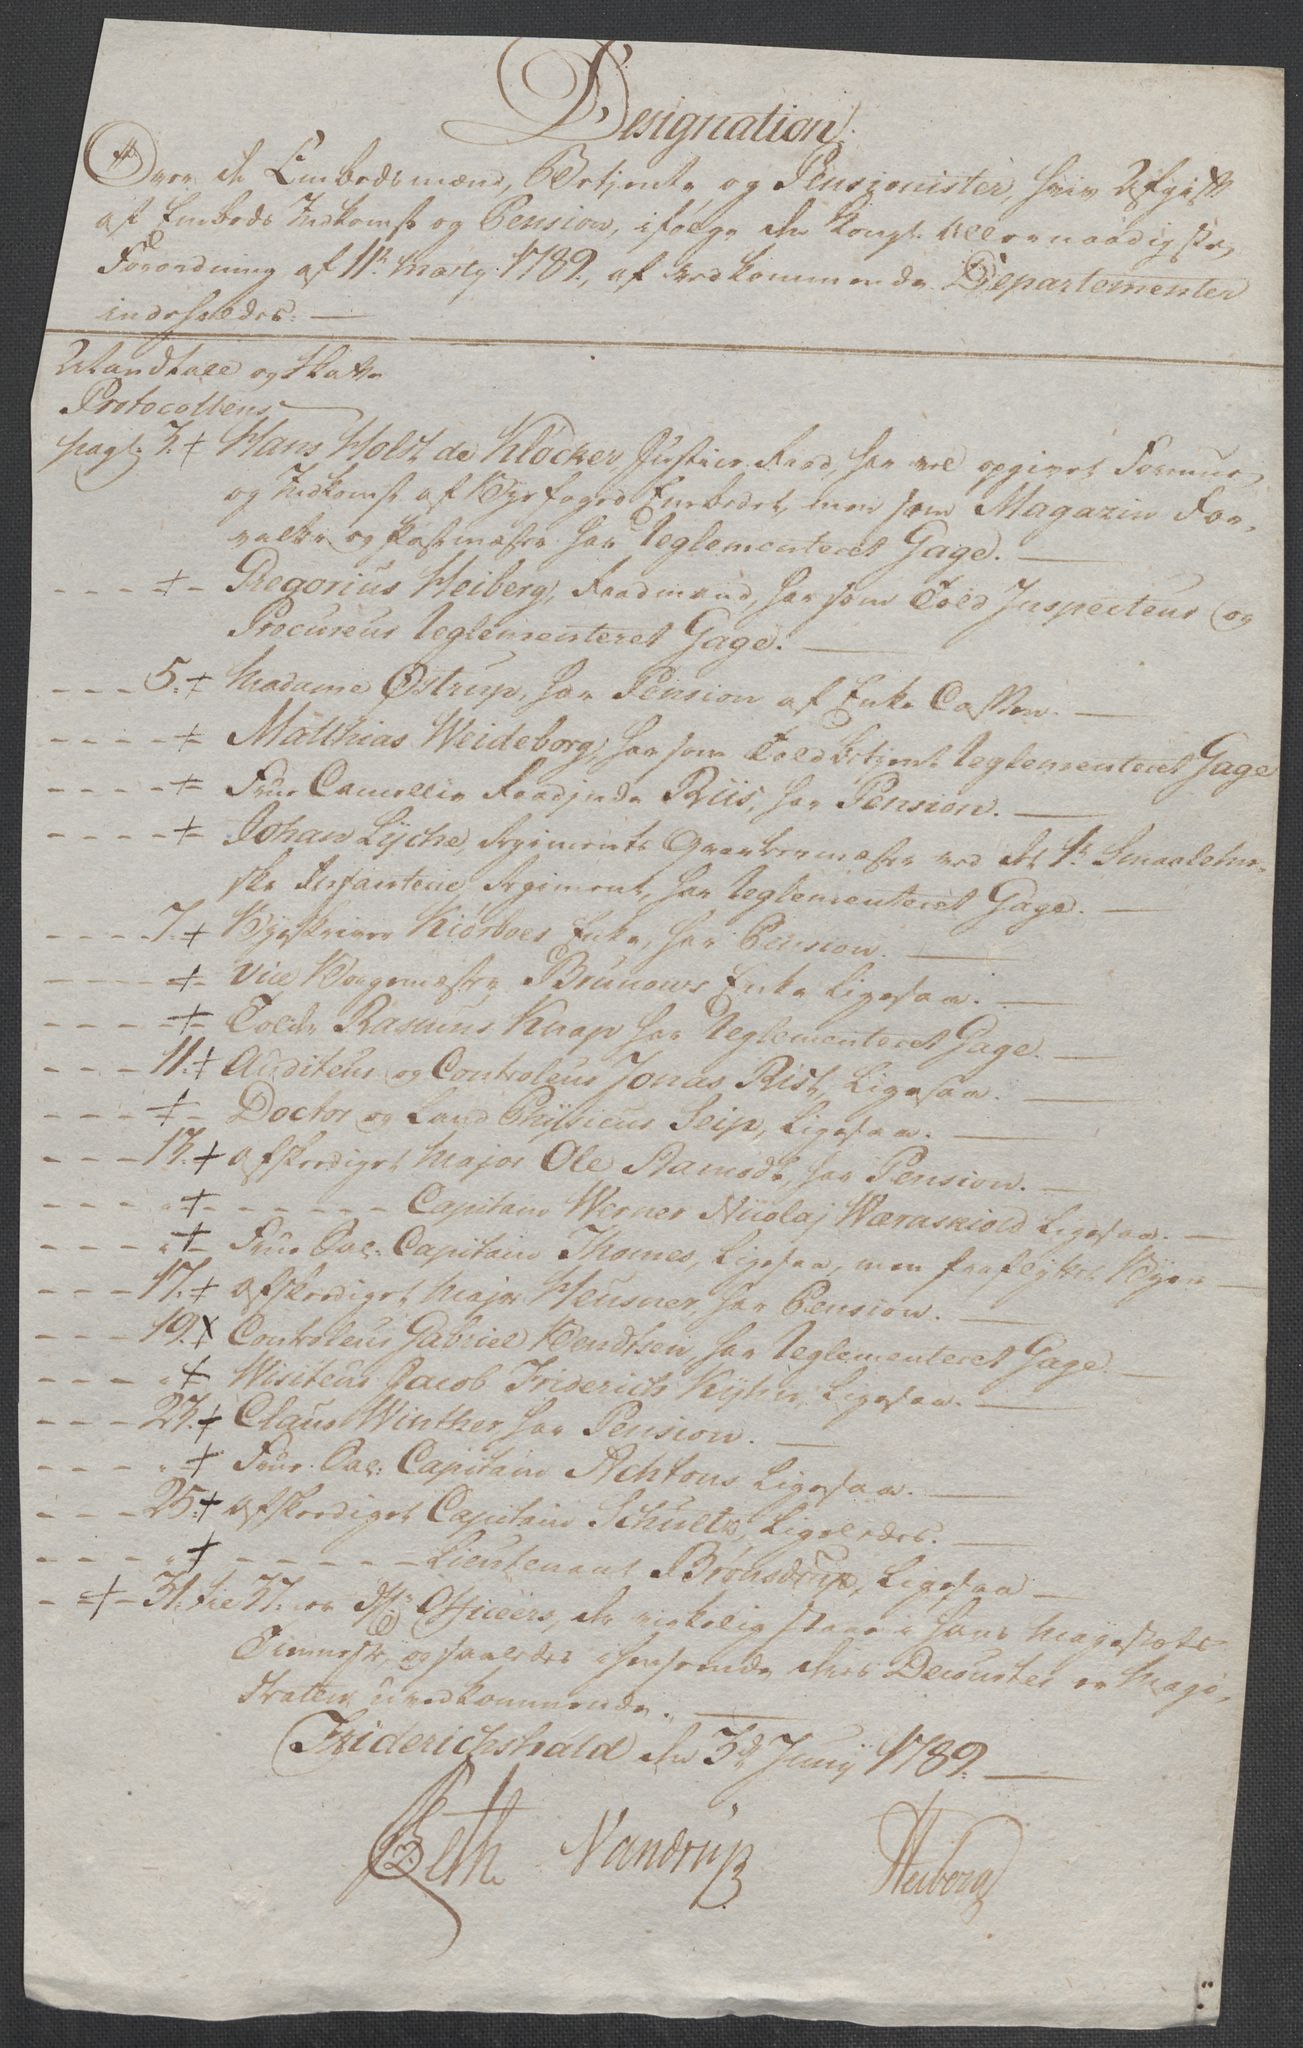 Designation
Over de Embedsmænd, Betjente og Pensionister, hvis Afgift
af Embeds Indkomst og Pension, ifølge den Kongl. Allernaadigste
Forordning af 11te Martÿ 1789, af vedkommende Departementer
indeholdes. —
Mandtall og Skatte
Protocollens
pagl. 3. + Hans Holst de Klocker, Justice Raad, har vel opgivet Formue
og Indkomst af Byefoged Embedet, men som Magazin For-
valter og Postmester har Reglementeret Gage. —
- - - - + - Gregorius Heiberg, Raadmand, har som Told Inspecteur og
Procureur Reglementeret Gage. —
- - - 5. + Madame Østrup, har Pension af Enke Cassen. —
- - - - + Matthias Weideborg, har som Toldbetjent Reglementeret Gage
- - - - + Frue Cancellie Raadinde Riis, har Pension. —
- - - - + Johan Lÿche, Regiments Qvarteermester ved det 1te Smaalehn-
ske Infanterie Regiment, har Reglementeret Gage. —
- - - 7. + Byeskriver Kiørboes Enke, har Pension. —
- - - - + Vice Borgemester Brunows Enke Ligesaa. —
- - - - + - Tolder Rasmus Knap har Reglementeret Gage. —
- - - 11. + Auditeur og Controleur Jonas Rist, Ligesaa. —
- - - - + - Doctor og Land Phÿsicus Seip, Ligesaa. —
- - - 13. + afskediget Major Ole Aamodt, har Pension. —
- - - - " + - - - - - - - Capitain Werner Nicolaj Værnskiold Ligesaa. —
- - - - " + - Frue Ovl: Capitain Thomes, Ligesaa, men fraflÿttet Bÿen —
- - - 17. + afskediget Major Heusner, har Pension. —
- - - 19. + Controleur Gabriel Bendtsen, har Reglementeret Gage. —
- - - - " + Visiteur Jacob Friderich Kÿhn, Ligesaa. —
- - - 23. + Claus Winther har Pension. —
- - - - " + Frue Ovl: Capitain Achtons Ligesaa. —
- - - 25. + afskediget Capitain Schultz, Ligeledes. —
- - - - " + - - - - - - - Lieutenant Brønsdrup, Ligesaa —
- + - 31. til 37. er Officiers, der virkelig staar i Hans Majestæts
Tieneste, og saaledes i henseende deres Decourter er Magi-
straten uvedkommende. —
Friderichshald den 3de Junÿ 1789. —
Beth Vandrup Heiberg